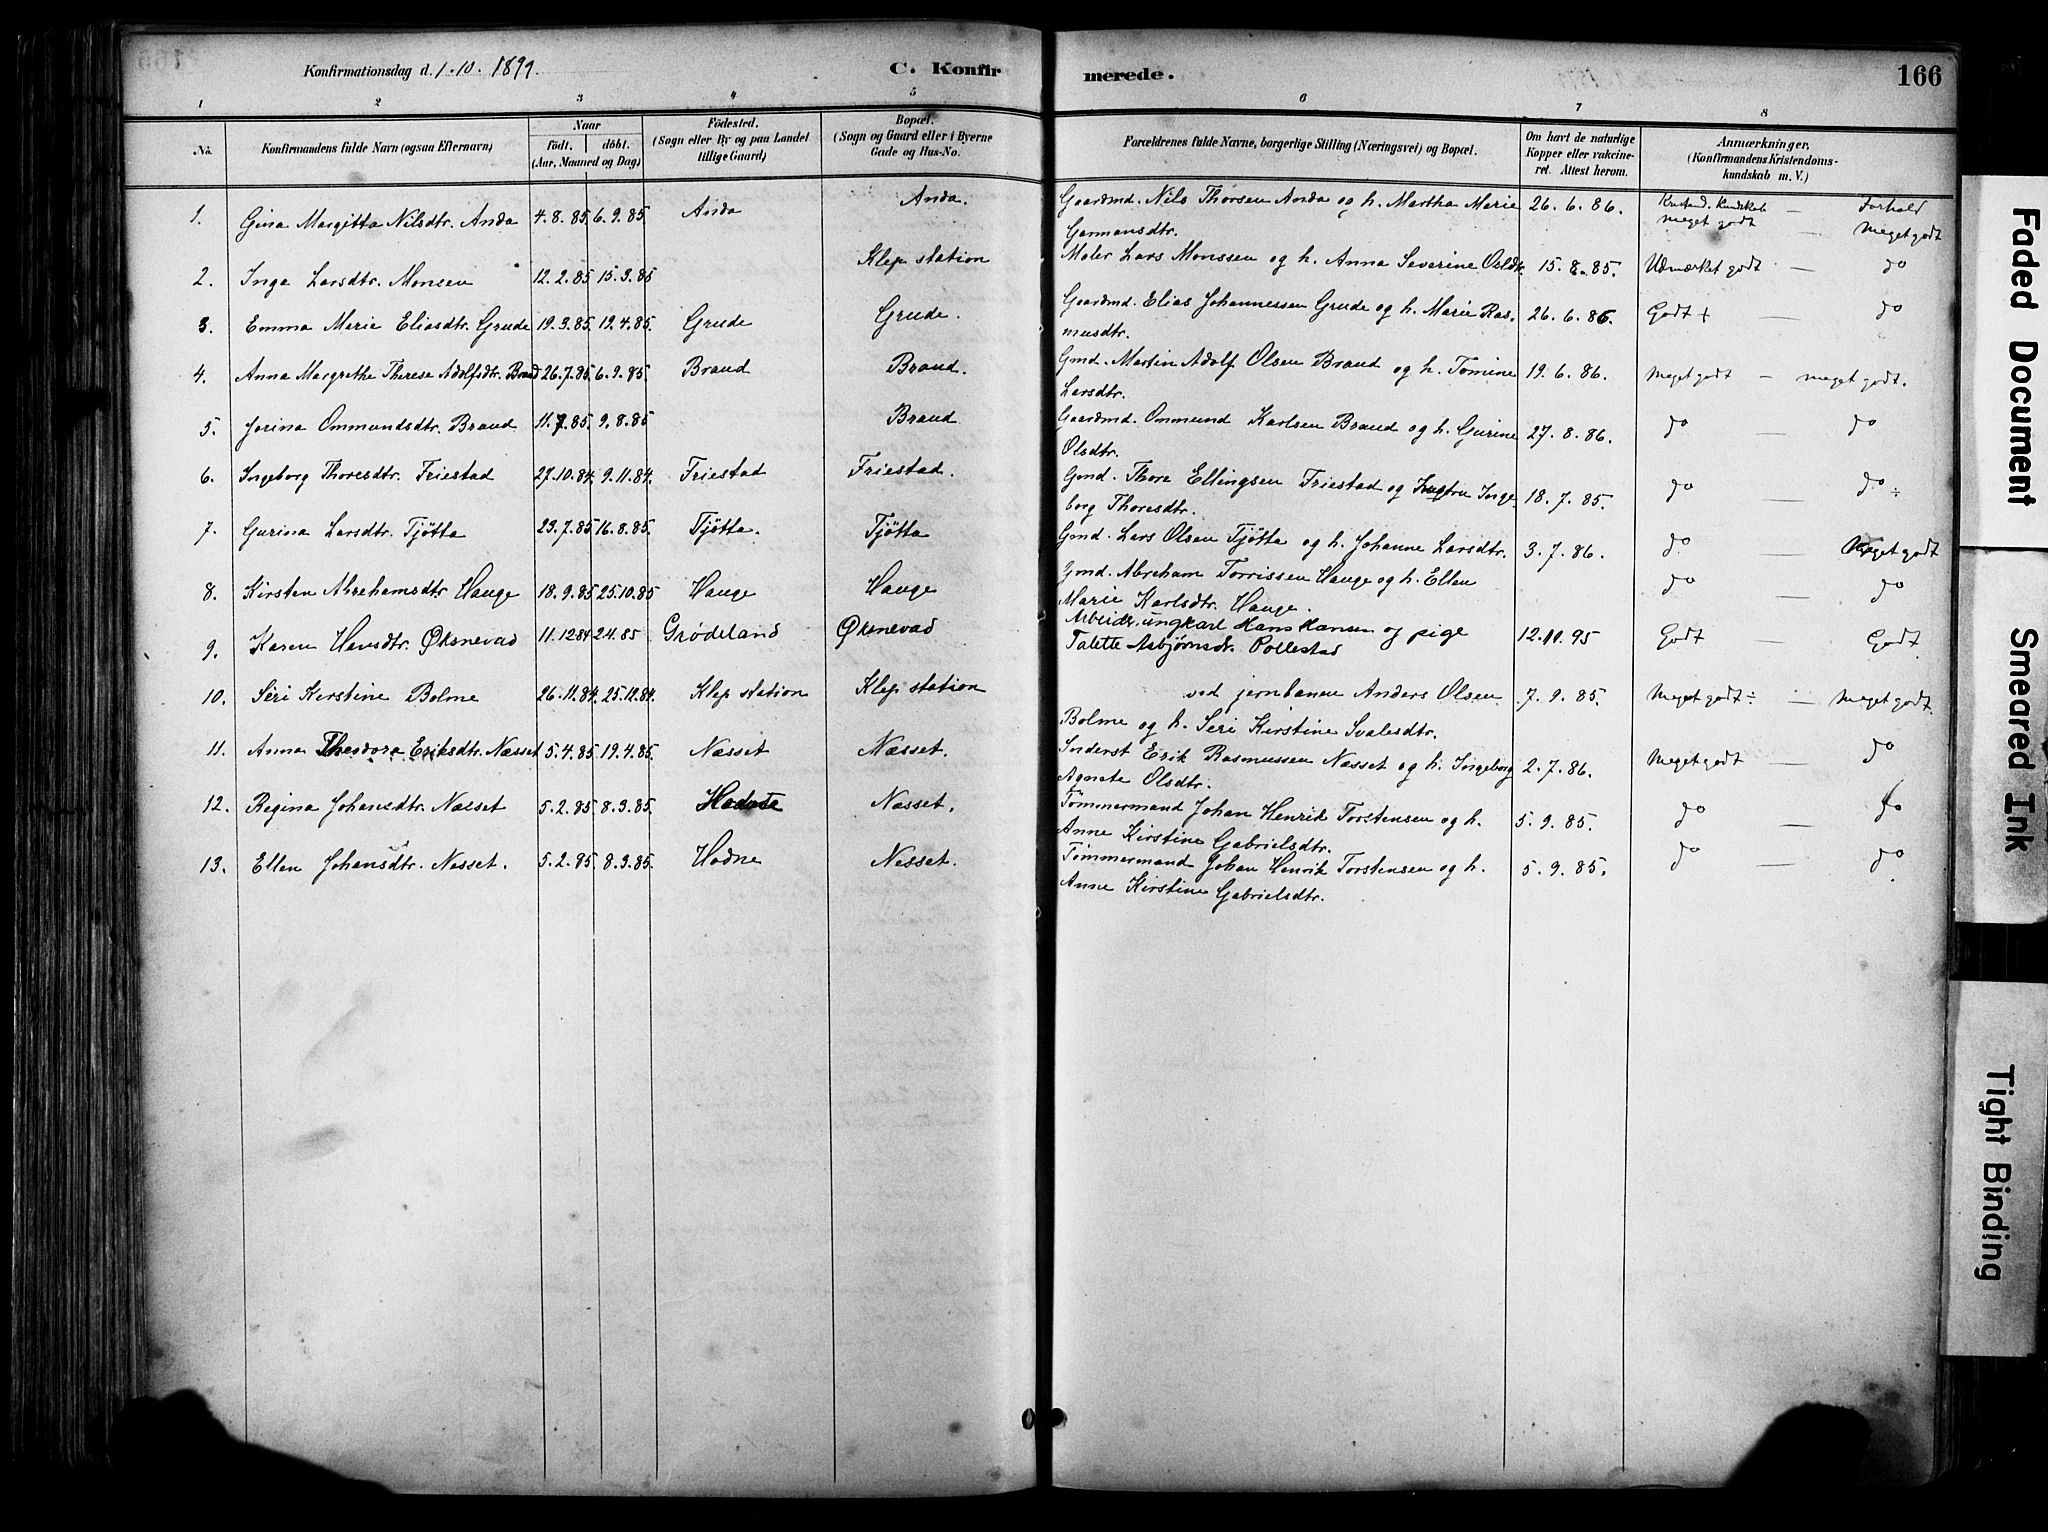 Konfirmationsdag d. 1.10. 1899.
C. Konfirmerede.
166
1 2 3 4 5 6 7 8
No.
Konfirmandens fulde Navn (ogsaa Efternavn)
Naar
födt. döbt.
(Aar, Maaned og Dag)
Födested.
(Sogn eller By og paa Landet
tillige Gaard)
Bopæl.
(Sogn og Gaard eller i Byerne
Gade og Hus-No.
Forældrenes fulde Navne, borgerlige Stilling (Næringsvei) og Bopæl.
Om havt de naturlige
Kopper eller vakcine-
ret. Attest herom.
Anmærkninger.
(Konfirmandens Kristendoms-
kundskab m. V.)
1. Gina Margitta Nilsdtr. Anda 4.8.85 6.9.85 Anda Anda. Gaardmd. Nils Thorsen Anda og h. Martha Marie 26.6.86. Kristend. kundskab — Forhold
Germansdtr. meget godt meget godt
2. Inga Larsdtr. Monsen 12.2.85 15.3.85 Klep station Maler Lars Monssen og h. Anna Severine 15.8.85. Udmærket godt — do
3. Emma Marie Eliasdtr. Grude 19.3.85 19.4.85. Grude Grude. Gaardmd. Elias Johannessen Grude og h. Marie Ras- 26.6.86. Godt + — do
musdtr.
4. Anna Margrethe Therese Adolfsdtr. Braud 26.7.85 6.9.85. Braud Braud. Gmd. Martin Adolf Olsen Braud og h. Tomine 19.6.86. Meget godt — meget godt.
Larsdtr.
5. Jorina Ommundsdtr. Braud 11.7.85 9.8.85 Braud Gaardmd. Ommund Karlsen Braud og h. Gurine 27.8.86. do — do
Olsdtr.
6. Ingeborg Thoresdtr. Friestad 27.10.84 9.11.84. Friestad Friestad. Gmd. Thore Ellingsen Friestad og Hustru Inge- 18.7.85. do — do ÷
borg Thoresdtr.
7. Gurina Larsdtr. Tjøtta 23.7.85 16.8.85. Tjøtta. Tjøtta Gmd. Lars Olsen Tjøtta og h. Johanne Larsdtr. 3.7.86. do — Meget godt
8. Kirsten Abrahamsdtr. Hauge 18.9.85 25.10.85 Hauge Hauge Gmd. Abraham Torrissen Hauge og h. Ellen do — do
Marie Karlsdtr. Hauge.
9. Karen Hansdtr. Øksnevad 11.12 84 2 4. 85 Grødeland Øksnevad Arbeider, ungkarl Hans Hansen og pige 12.10.95 Godt — Godt
Talette Asbjørnsdr. Pollestad
10. Seri Kirstine Bolme 26.11.84. 25.12.84. Klep station Klep station ved jernbanen Anders Olsen 7.9.85. Meget godt ÷ — Meget godt
Bolme og h. Seri Kirstine Svalesdtr.
11. Anna Theodora Eriksdtr. Næsset 5.4.85 19.4.85. Næsset Næsset. Inderst Erik Rasmussen Næsset og h. Ingeborg 2.7.86. Meget godt — do
Agnete Olsdtr.
12. Regina Johansdtr. Næsset 5.2.85 8.3.85. Næsset. Tømmermand Johan Henrik Torstensen og h. 5.9.85. do — do
Anne Kirstine Gabrielsdtr.
13. Ellen Johansdtr. Næsset. 5.2.85 8.3.85. Hodne Næsset. Tømmermand Johan Henrik Torstensen og h. 5.9.85. do — do
Anne Kirstine Gabrielsdtr.
Faded Document
Smeared Ink
Tight Binding